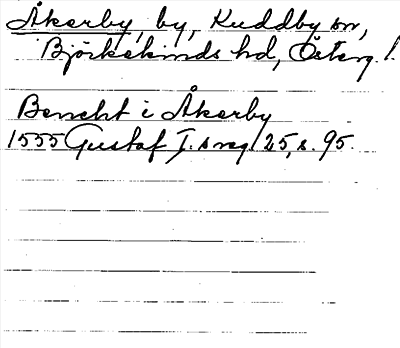 Åkerby, by, Kuddby sn,
Björkekinds hd, Österg. l.
Bencht i Åkerby
1555 Gustaf I:s reg. 25, s. 95.